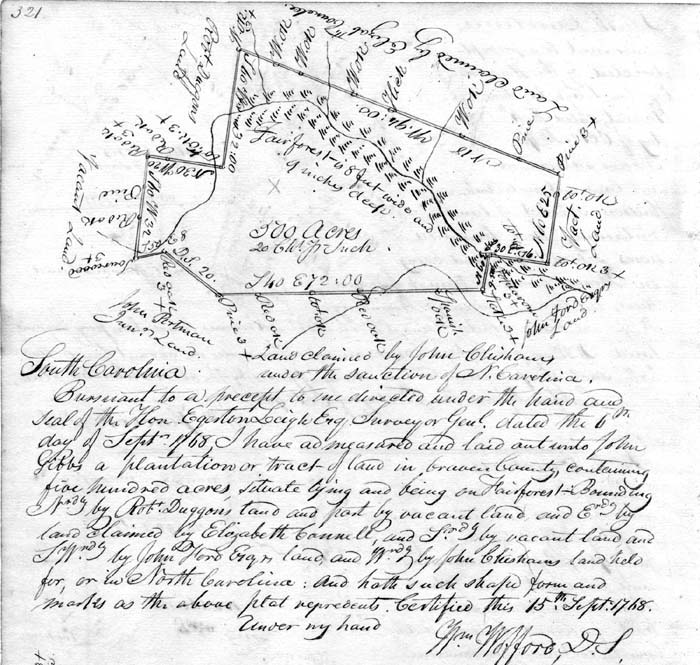 321
Robt. Duggons
Land
Land claimed by Elizabeth
Wok
Wok
Wok
Hick
Wok
Pine
Pine 3+
Fairforest - 68 feet wide and
9 inches deep.
500 Acres
20 Chs. pr. Inch.
S40 E72:00
Vacant Land
Vact.
Land
John Portman
Junr. Land.
John Ford Esqrs
Land
Pine 3+
Redoak
Redoak
Spanish
Land claimed by John Chishams
under the sanction of N. Carolina.
South Carolina.
Pursuant to a precept to me directed under the hand and
seal of the Hon. Egerton Leigh Esq. Surveyor Genl. dated the 6th
day of Septr. 1768. I have admeasured and laid out unto John
Gibbs a plantation or tract of land in Craven County, containing
five hundred acres, situate lying and being on Fairforest - Bounding
Nrdy by Robt. Duggon's land and part by vacant land, and Erdy by
land claimed by Elizabeth Connell, and Srdy by vacant land and
by John Ford Esqrs land, and Wrdy by John Chishams land held
for, or in North Carolina: And hath such shape form and
marks as the above plat represents. Certified this 15th Sept. 1768.
Under my hand
Wm. Wofford, D.S.